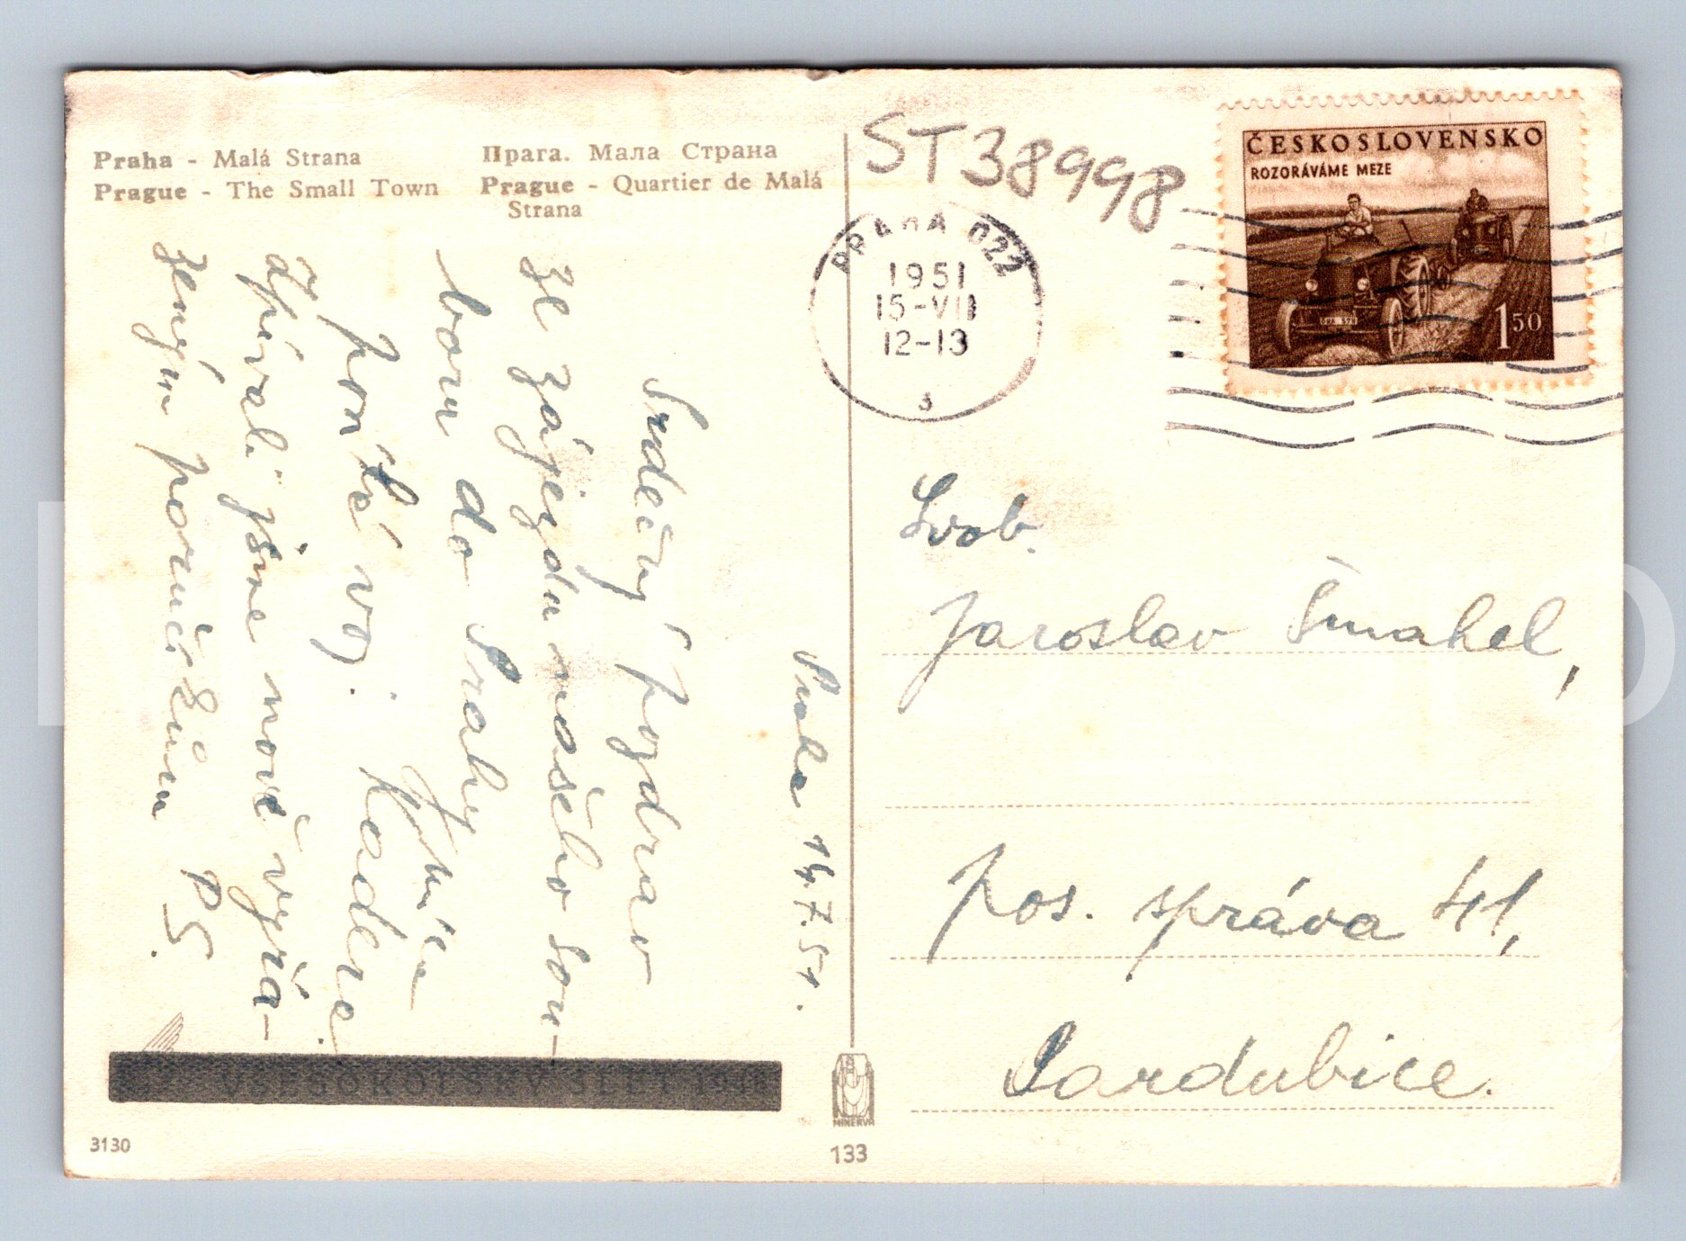 Praha - Malá Strana
Prague - The Small Town
Прага. Мала Страна
Prague - Quartier de Malá
Strana
ST38998
PRAHA 022
1951
15-VII
12-13
3
ČESKOSLOVENSKO
ROZORÁVÁME MEZE
1 50
Praha 14.7.51.
Srdečný pozdrav
ze zájezdu našeho sou-
boru do Prahy
Kadera
P S.
zpívali jsme nově vyrá-
ženým poručíkům
Svob.
Jaroslav Šmahel,
pos. správa 41,
Pardubice.
VŠESOKOLSKÝ SLET 1948
MINERVA
3130
133